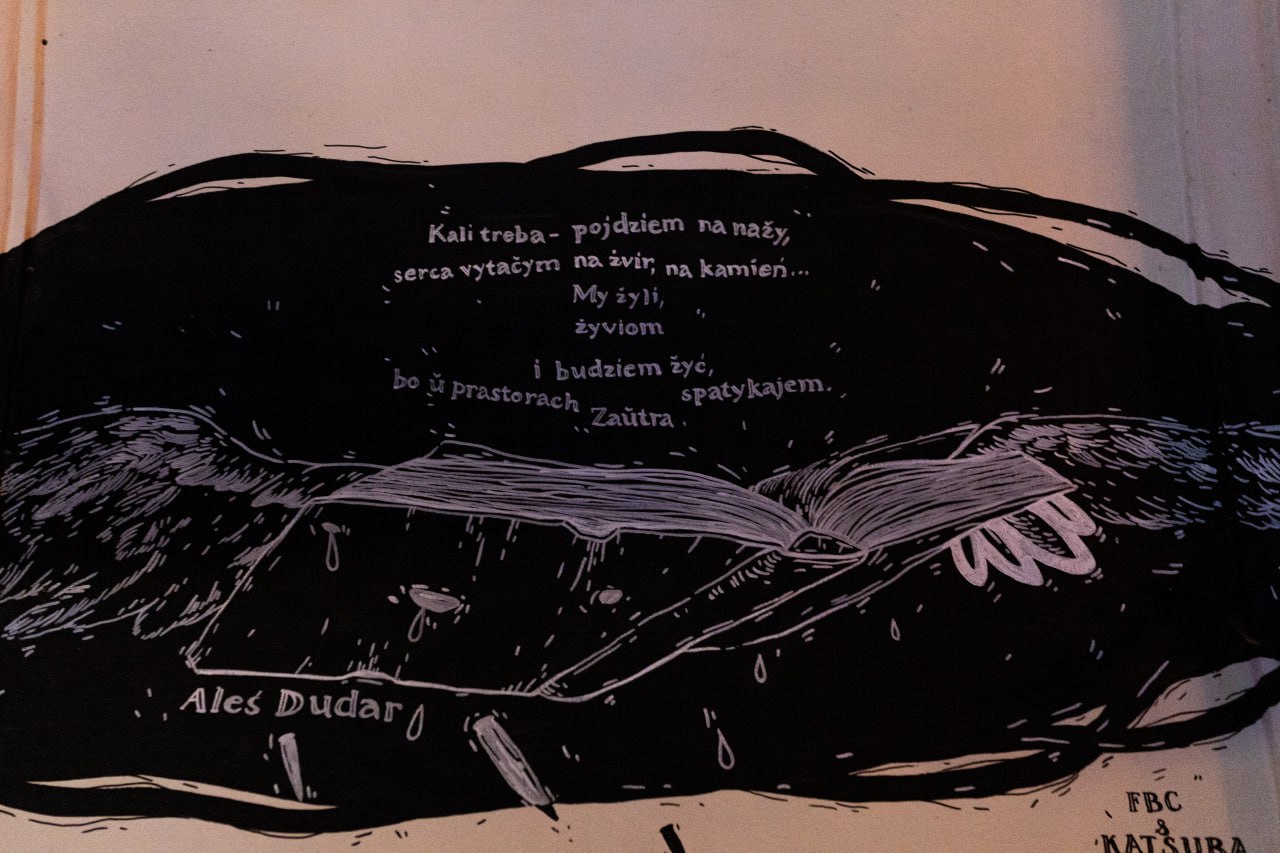 Kali treba - pojdziem na nažy,
serca vytačym na žvir, na kamień...
My žyli,
žyviom
i budziem žyć,
bo ŭ prastorach spatykajem.
Zaŭtra
Aleś Dudar
FBC
&
KATSUBA